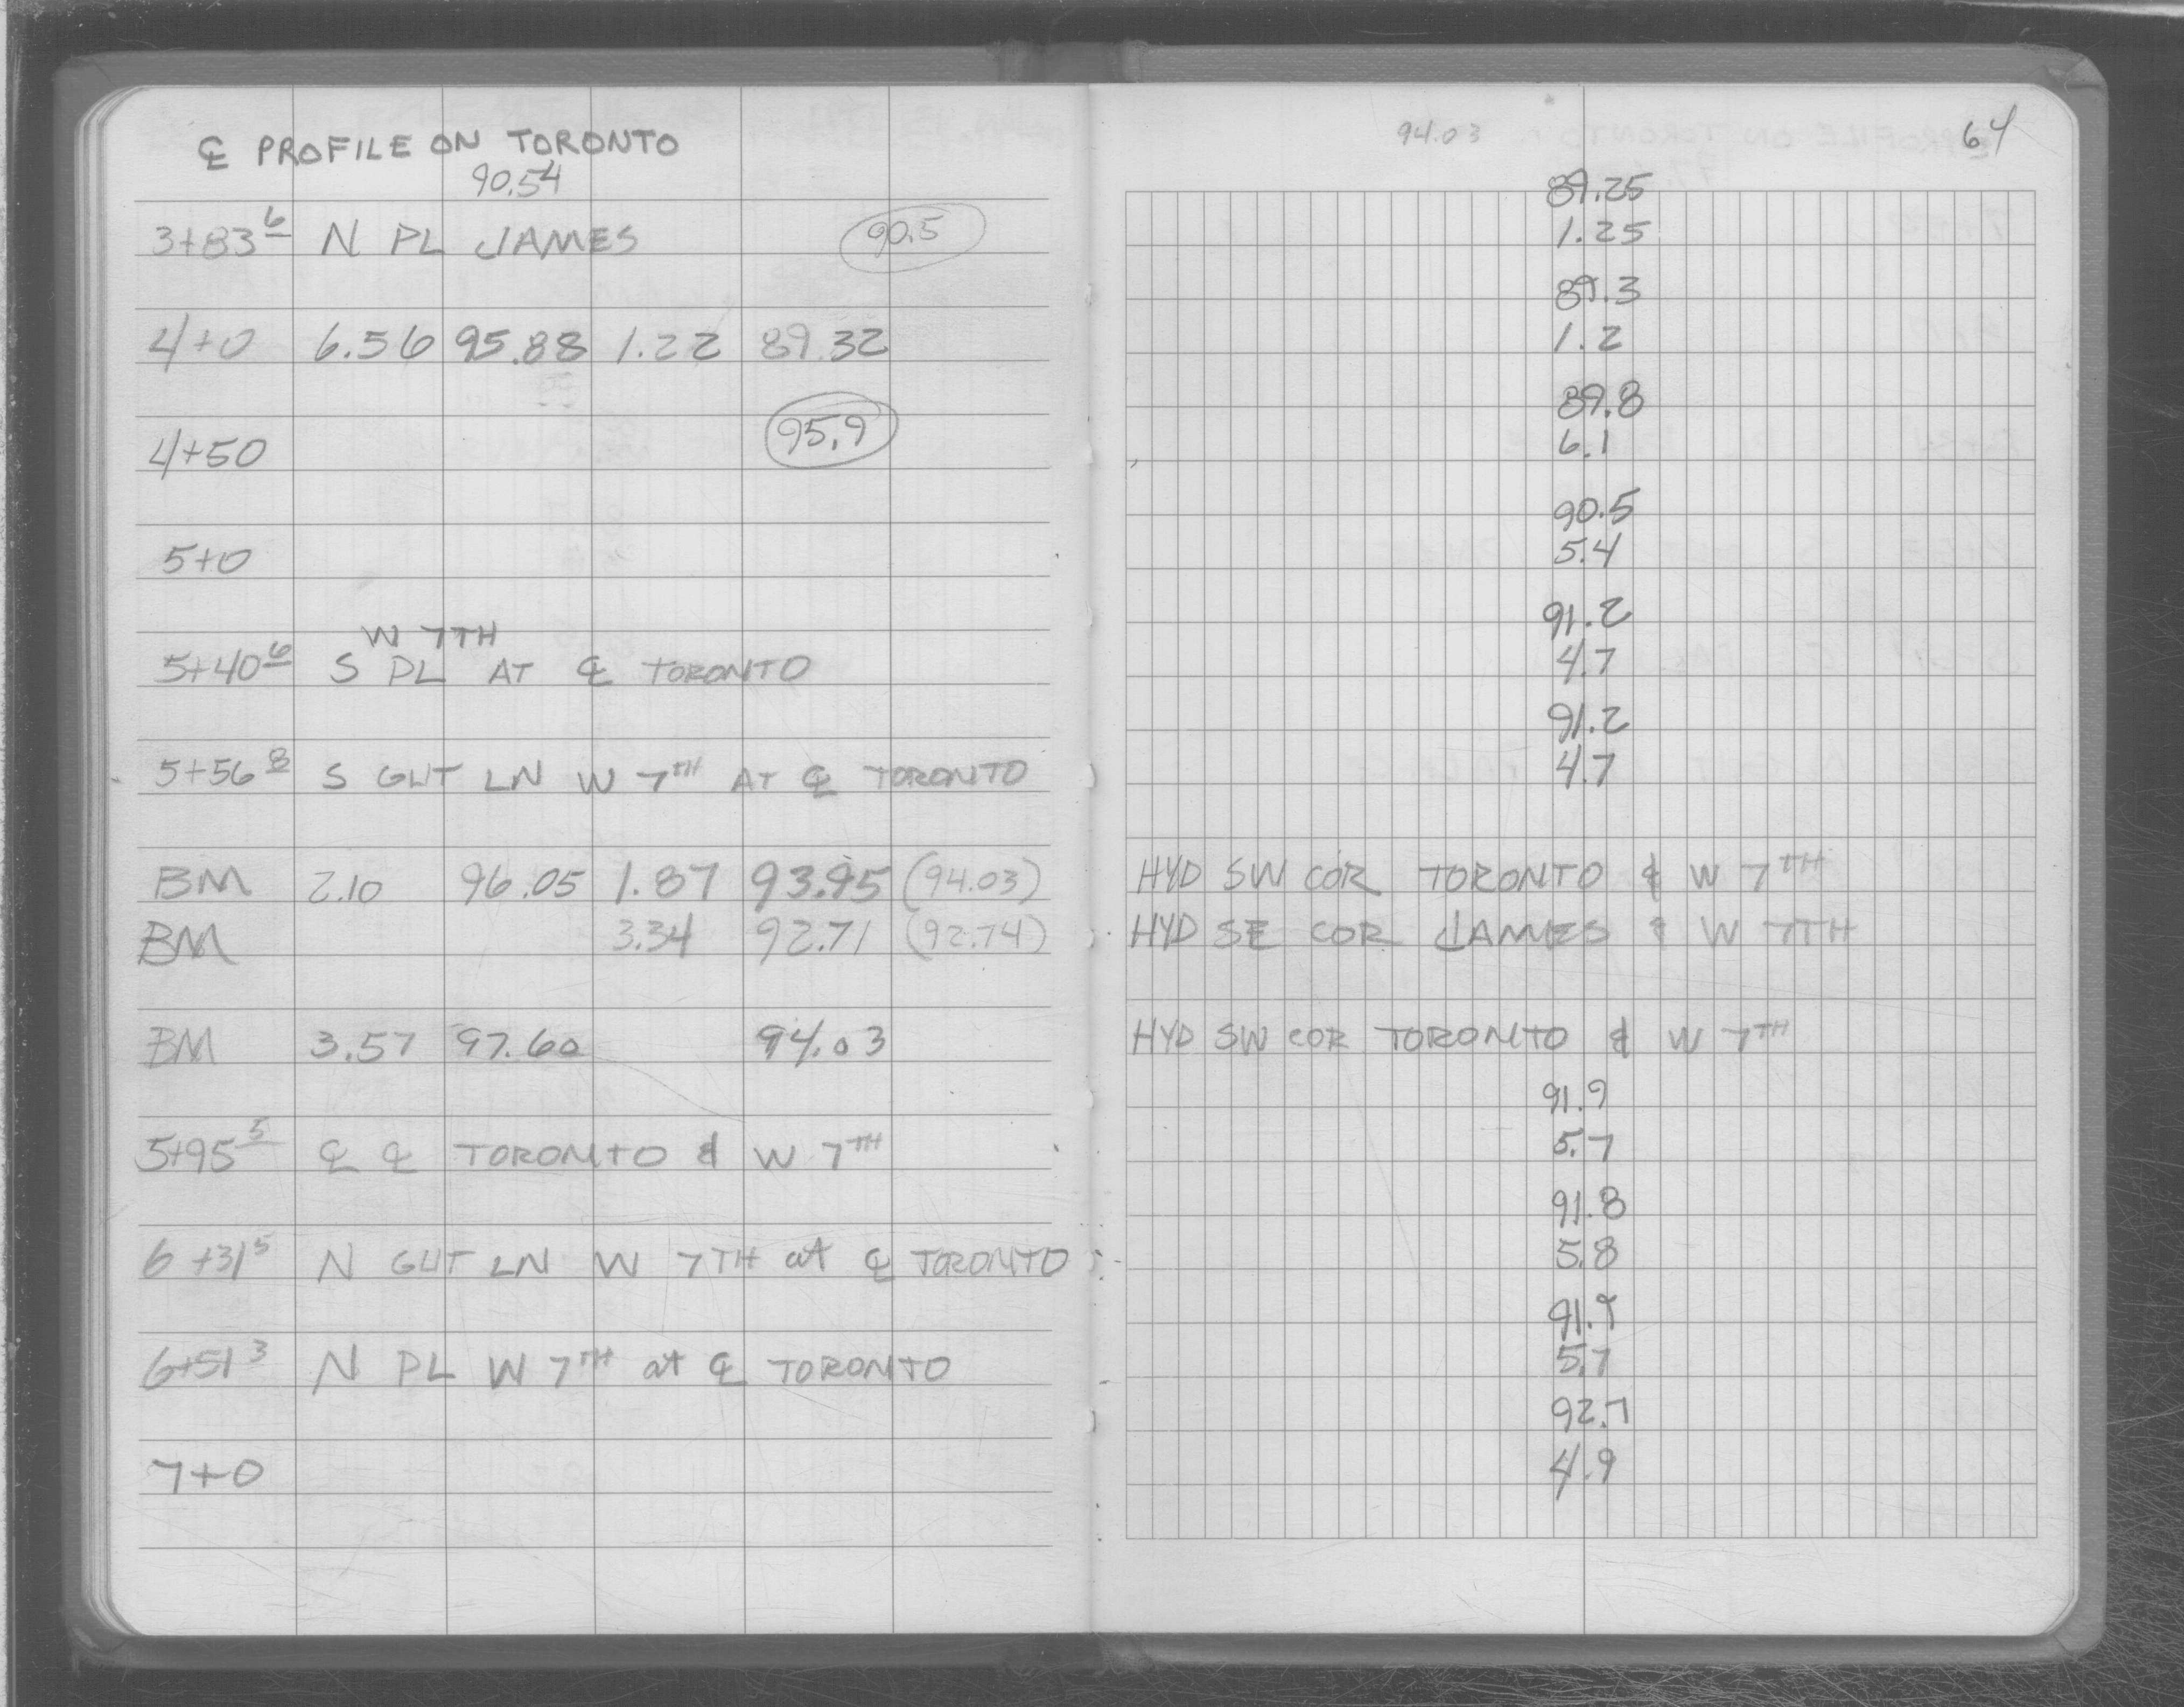 ℄ PROFILE ON TORONTO
90.54
3+83 6 N PL JAMES 90.5
4+0 6.56 95.88 1.22 89.32
4+50 95.9
5+0
W 7TH
5+40 6 S PL AT ℄ TORONTO
5+56 8 S GUT LN W 7TH AT ℄ TORONTO
BM 2.10 96.05 1.87 93.95 (94.03)
BM 3.34 92.71 (92.74)
BM 3.57 97.60 94.03
5+95 5 ℄ ℄ TORONTO & W 7TH
6+31 5 N GUT LN W 7TH at ℄ TORONTO
6+51 3 N PL W 7TH at ℄ TORONTO
7+0
94.03 64
89.25
1.25
89.3
1.2
89.8
6.1
90.5
5.4
91.2
4.7
91.2
4.7
HYD SW COR TORONTO & W 7TH
HYD SE COR JAMES & W 7TH
HYD SW COR TORONTO & W 7TH
91.9
5.7
91.8
5.8
91.9
5.7
92.7
4.9